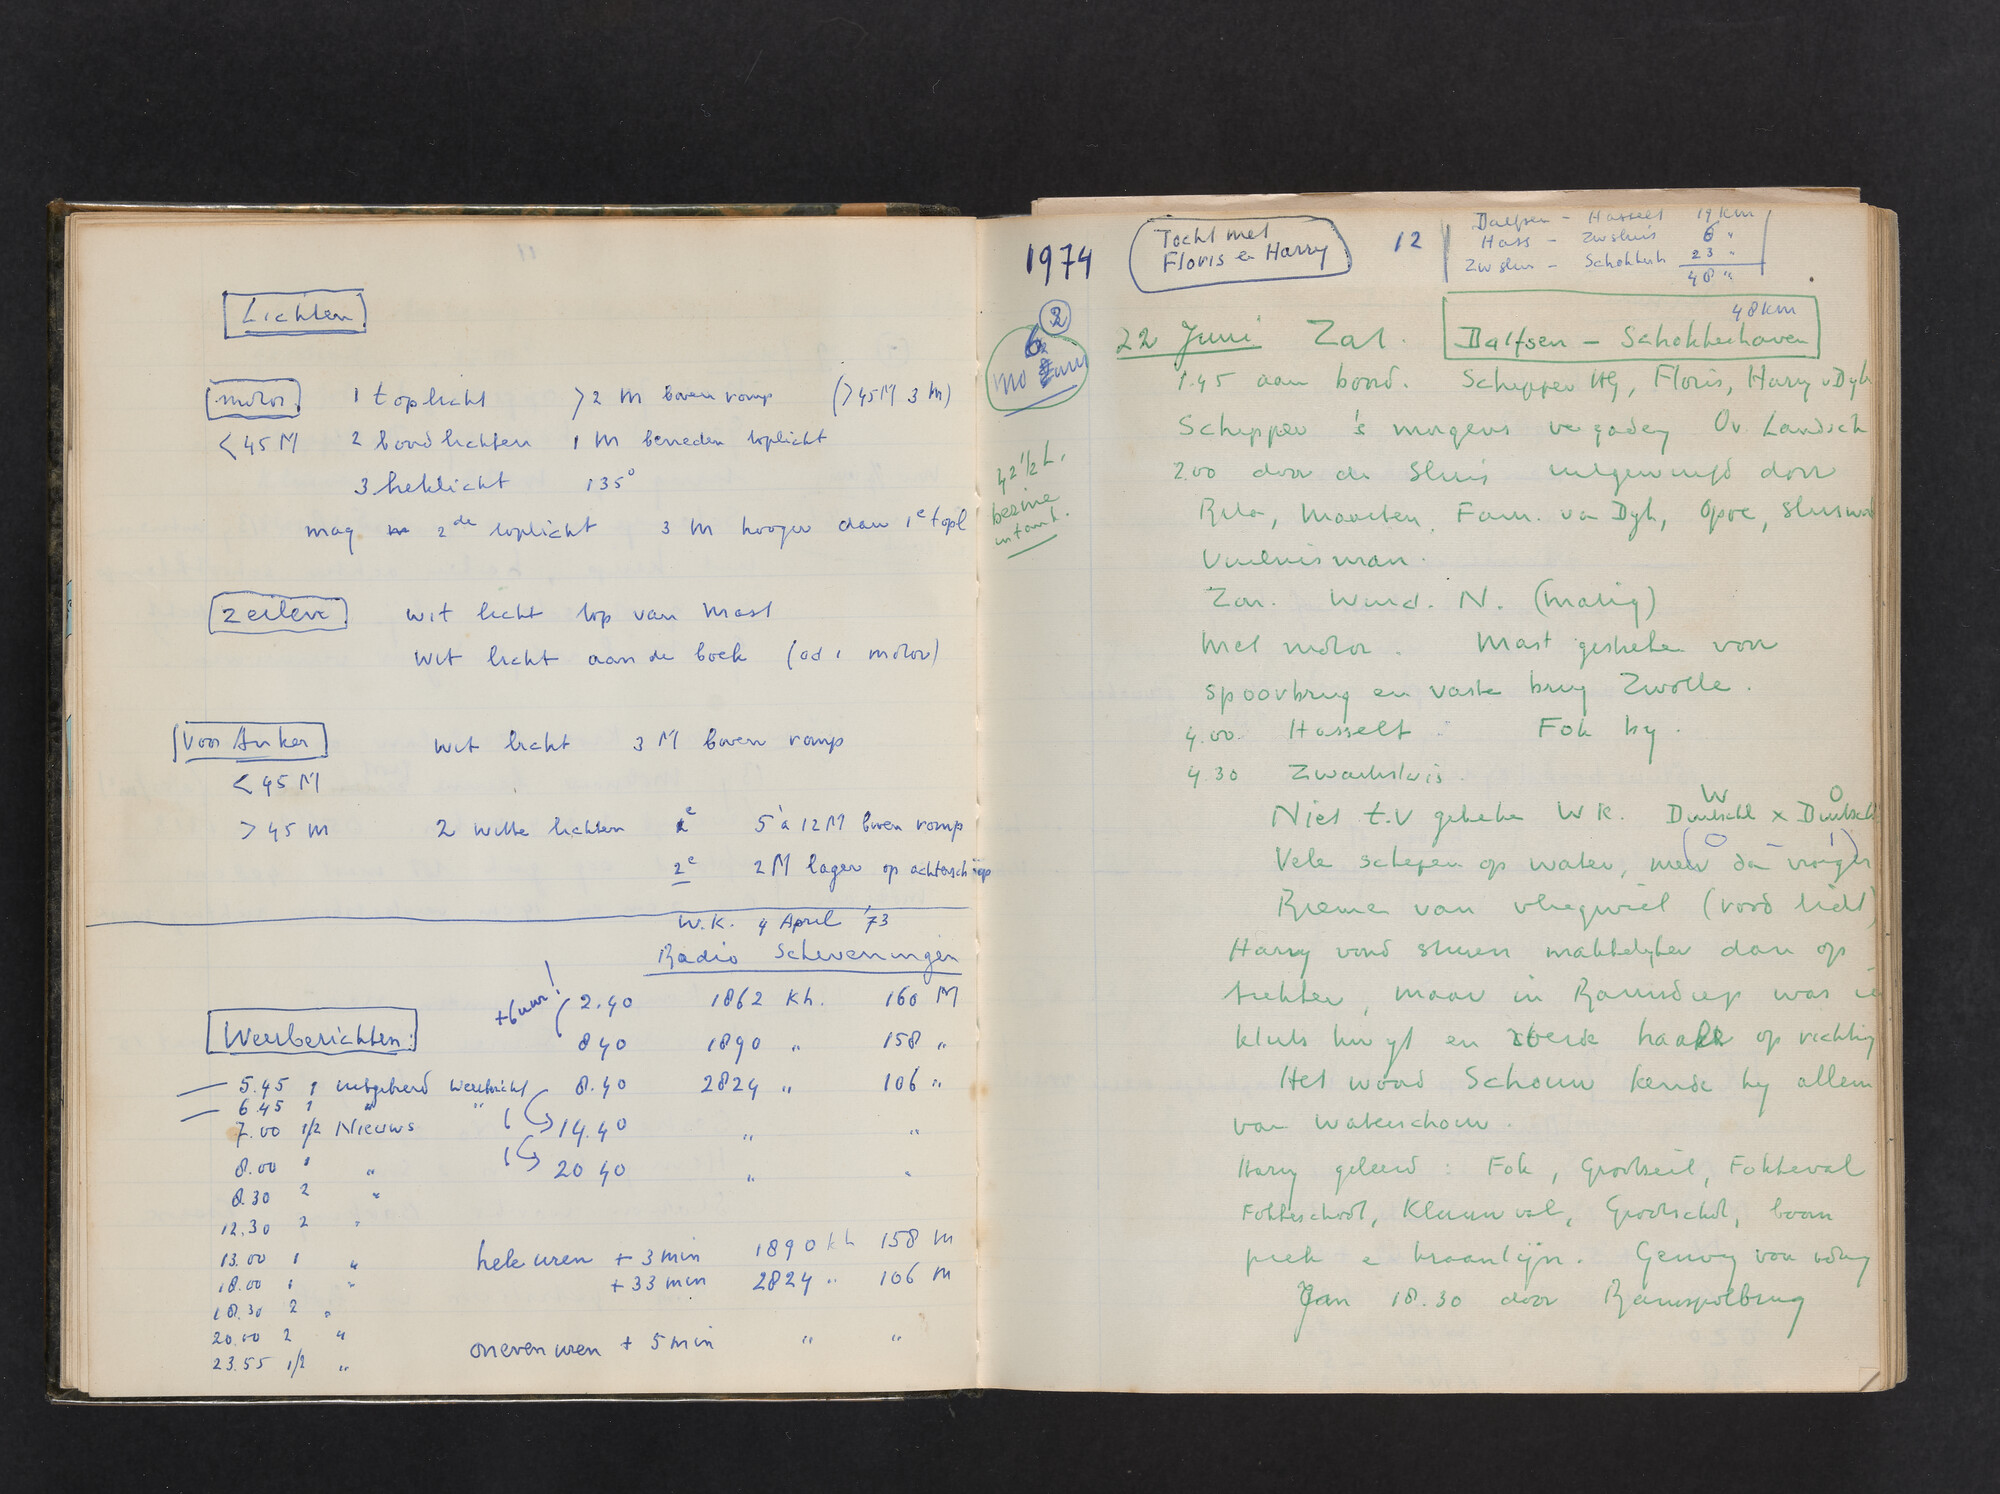 Lichten
motor 1 toplicht > 2 M boven romp (> 45 M 3 M)
< 45 M 2 boordlichten 1 M beneden toplicht
3 heklicht 135°
mag 2de toplicht 3 M hooger dan 1e topl
Zeilen wit licht top van mast
wit licht aan de boeg motor)
Voor Anker wit licht 3 M boven romp
< 45 M
> 45 m 2 witte lichten 5 à 12 M boven romp
2e 2 M lager op achterschip
W.K. 4 April '73
Radio Scheveningen
+6 uur! 2.40 1862 kh. 160 M
Weerberichten: 840 1890 " 158 "
5.45 1 uitgebreid weerbericht 8.40 2824 " 106 "
6.45 1 " "
7.00 1/2 Nieuws 14.40 " "
8.00 1 " 20 40 " "
8.30 2 "
12.30 2 "
13.00 1 " hele uren + 3 min 1890 kh 158 m
18.00 1 " + 33 min 2824 " 106 m
18.30 2 "
20.00 2 "
23.55 1/2 " oneven uren + 5 min " "
1974
Tocht met
Floris en Harry
12
Dalfsen - Hasselt 19 km
Hass - Zwsluis 6 "
Zwsluis - Schokkerh 23 "
48 "
48 km
2
6
42 1/2 L.
benzine
in tank.
22 Juni Zat. Dalfsen - Schokkerhaven
1.45 aan boord. Schipper Floris, Harry v Dyk
Schipper 's morgens vergaderg Ov. Landsch
2.00 door de sluis uitgewuifd door
Rita, Maarten, Fam. van Dyk, Opoe, sluisw
Vuilnisman.
Zon. Wind. N. (matig)
Met motor. Mast gestreken voor
spoorbrug en vaste brug Zwolle.
4.00 Hasselt Fok by.
4.30 Zwartsluis.
Niet t.v gekeken W K. W Duitschl x O Duitschl
(0 - 1)
Vele schepen op water, meer dan vroeger
Riemen van vliegwiel (rood licht)
Harry vond sturen makkelyker dan op
trekker, maar in Ramsdiep was ie
kluts kwyt en op richting
Het woord Schouw kende hy alleen
van waterschouw.
Harry geleerd: Fok, Grootzeil, Fokkeval
Fokkeschoot, Klauwval, Grootschoot, boom
piek e kraanlyn. Genoeg voor vdaag
18.30 door Ramspolbrug